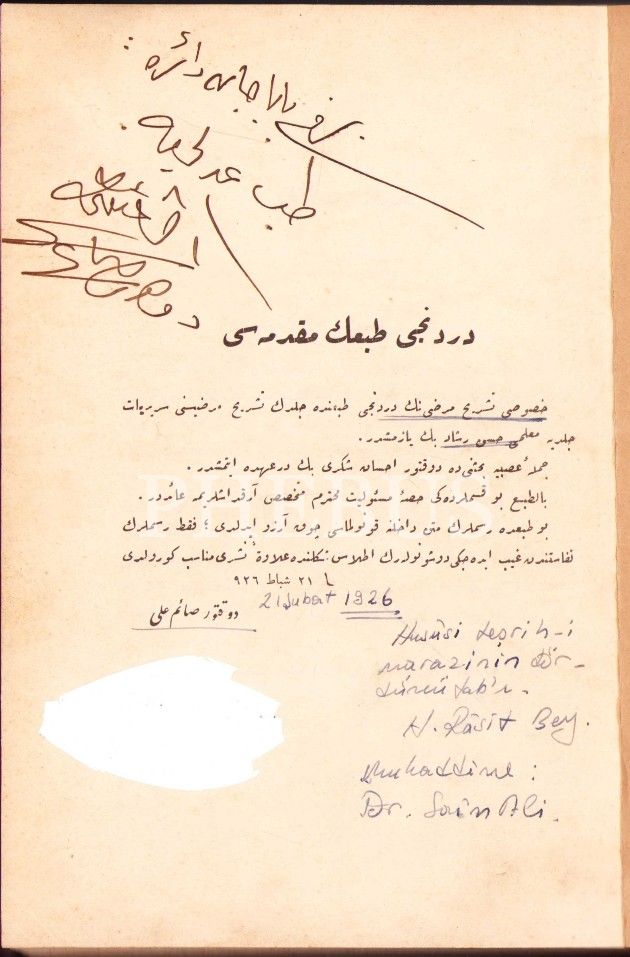 طب عدلی
دردنجی طبعك مقدمه سی
خصوصی تشریح مرضی نك دردنجی طبعنده جلدك تشریح مرضیسنی سریریات
جلدیه معلمی حسن رشاد بك یازمشدر .
جملهٔ عصبیه بحثنی ده دوقتور احسان شكری بك درعهده ایتمشدر .
بالطبع بو قسملرده كی حصهٔ مسئولیت محترم متخصص آرقداشلریمه عائددر .
بو طبعده رسملرك متن داخلنه قونولماسی چوق آرزو ایدلدی ؛ فقط رسملرك
نفاستندن غیب ایده جكی دوشونولدرك اطلاس شكلنده علاوةً نشری مناسب كورولدی
٢١ شباط ٩٢٦
21 Şubat 1926
دوقتور صائم علی
Hususi teşrih-i
marazinin dör-
düncü tab'ı.
H. Râşit Bey.
Mukaddime :
Dr. Saim Ali.